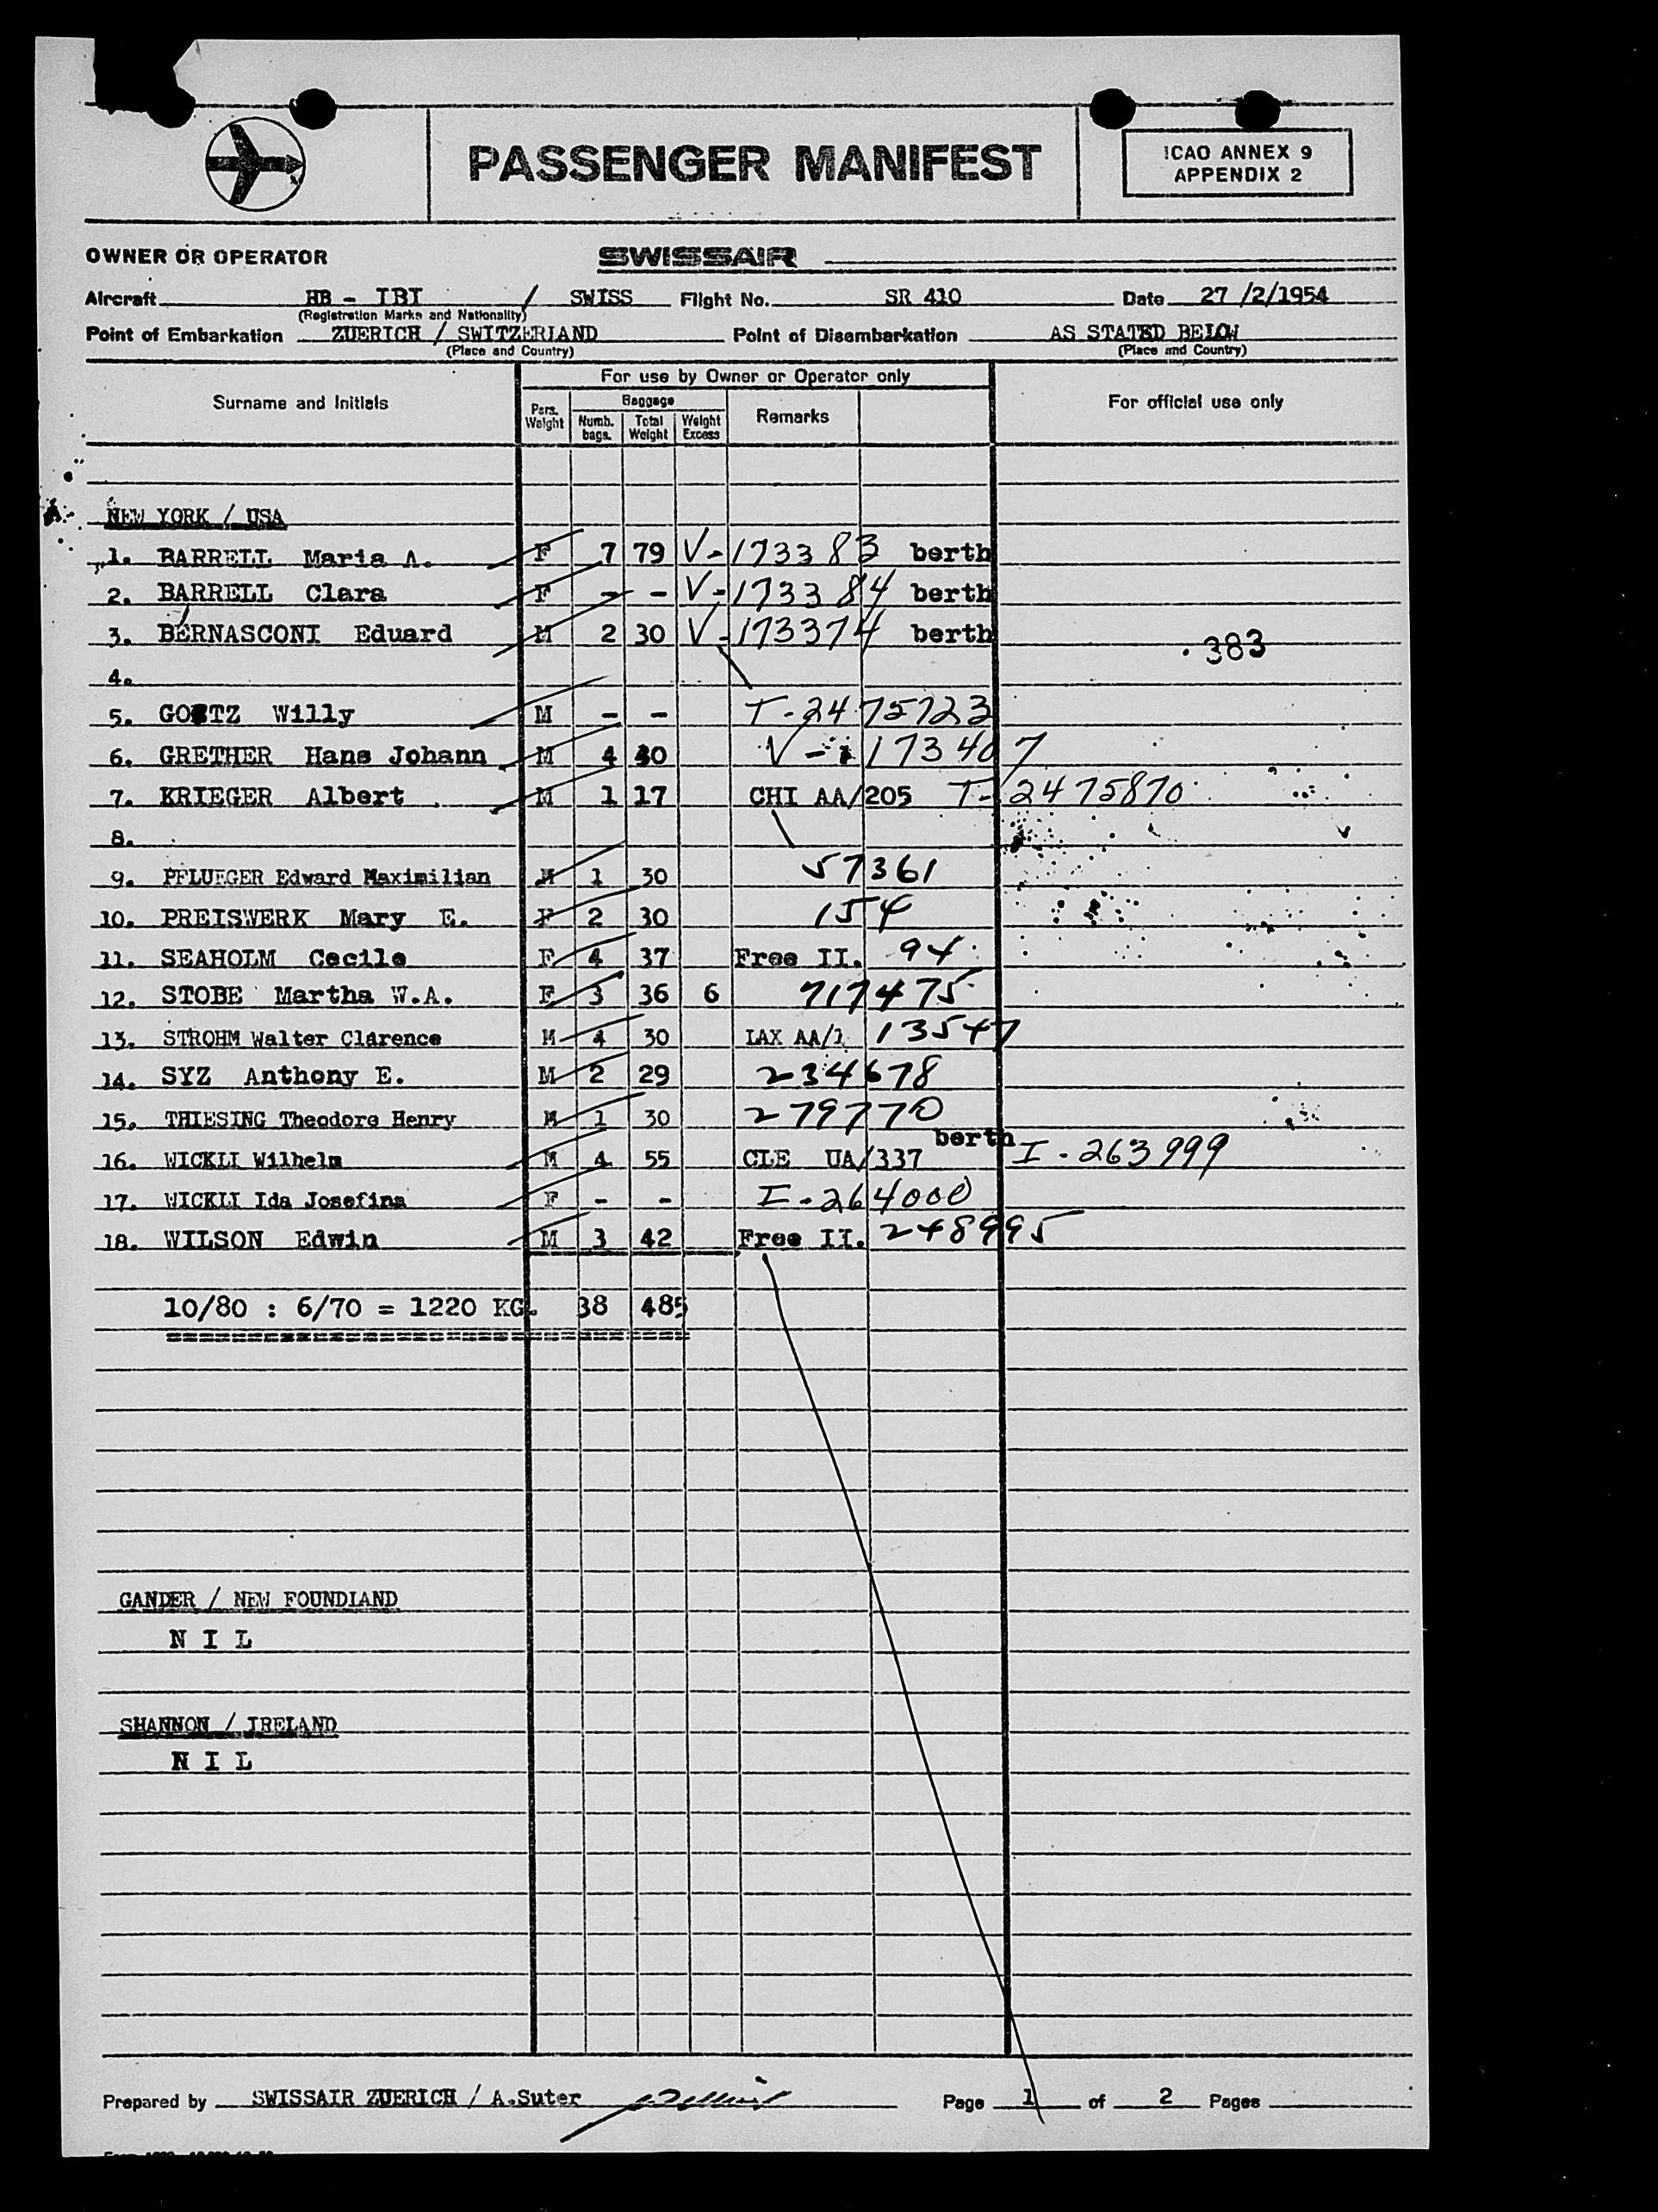 PASSENGER MANIFEST
ICAO ANNEX 9
APPENDIX 2
OWNER OR OPERATOR SWISSAIR
Aircraft HB - IBI / SWISS Flight No. SR 410 Date 27 /2/1954
(Registration Marks and Nationality)
Point of Embarkation ZUERICH / SWITZERLAND Point of Disembarkation AS STATED BELOW
(Place and Country) (Place and Country)
For use by Owner or Operator only
Surname and Initials Pers. Weight Baggage Numb. bags. Total Weight Weight Excess Remarks For official use only
NEW YORK / USA
1. BARRELL Maria A. F 7 79 V-173383 berth
2. BARRELL Clara F - - V-173384 berth
3. BERNASCONI Eduard M 2 30 V-173374 berth .383
4.
5. GOETZ Willy M - - T-2475723
6. GRETHER Hans Johann M 4 40 V-173407
7. KRIEGER Albert M 1 17 CHI AA/205 T-2475870
8.
9. PFLUEGER Edward Maximilian M 1 30 57361
10. PREISWERK Mary E. F 2 30 154
11. SEAHOLM Cecile F 4 37 Free II. 94
12. STOBE Martha W.A. F 3 36 6 717475
13. STROHM Walter Clarence M 4 30 LAX AA/1 13547
14. SYZ Anthony E. M 2 29 234678
15. THIESING Theodore Henry M 1 30 279770
berth
16. WICKLI Wilhelm M 4 55 CLE UA/337 I-263999
17. WICKLI Ida Josefina F - - I-264000
18. WILSON Edwin M 3 42 Free II. 248995
10/80 : 6/70 = 1220 KG. 38 485
GANDER / NEW FOUNDLAND
N I L
SHANNON / IRELAND
N I L
Prepared by SWISSAIR ZUERICH / A.Suter Page 1 of 2 Pages